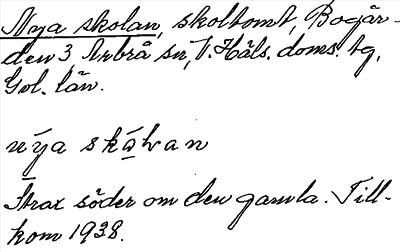 Nya skolan, skoltomt, Bogår-
den 3, Arbrå sn, V. Häls. doms. tg,
Gvl. län.
nýa skåⱨan
Strax söder om den gamla. Till-
kom 1938.